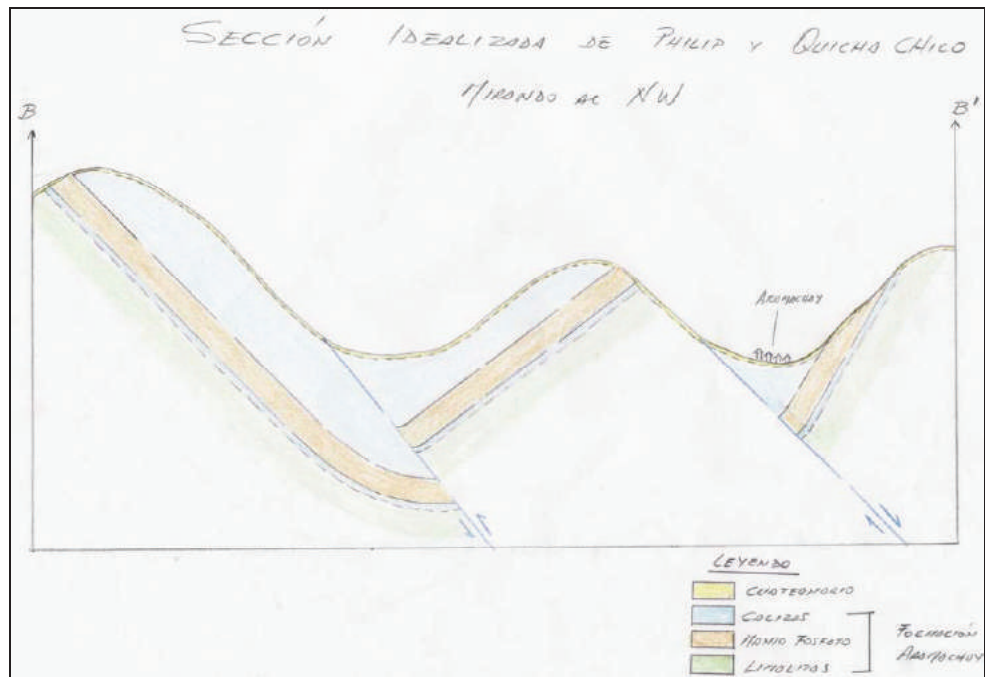 SECCIÓN IDEALIZADA DE PHILIP Y QUICHA CHICO
MIRANDO AL NW
B
B'
AROMACHAY
LEYENDA
CUATERNARIO
CALIZAS
MANTO FOSFATO
LIMOLITAS
FORMACIÓN
ARAMACHAY